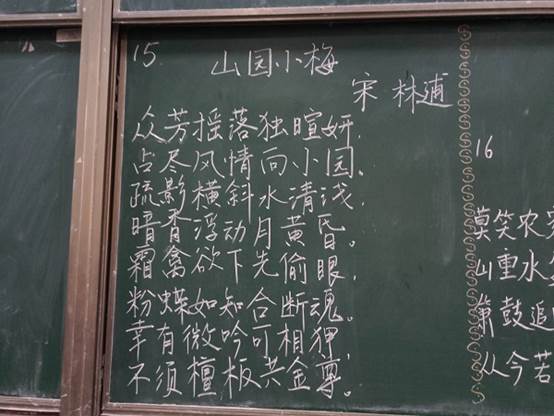 15.
山园小梅
宋 林逋
众芳摇落独暄妍,
占尽风情向小园。
疏影横斜水清浅,
暗香浮动月黄昏。
霜禽欲下先偷眼,
粉蝶如知合断魂。
幸有微吟可相狎,
不须檀板共金尊。
16
莫笑农家
山重水
箫鼓追
从今若